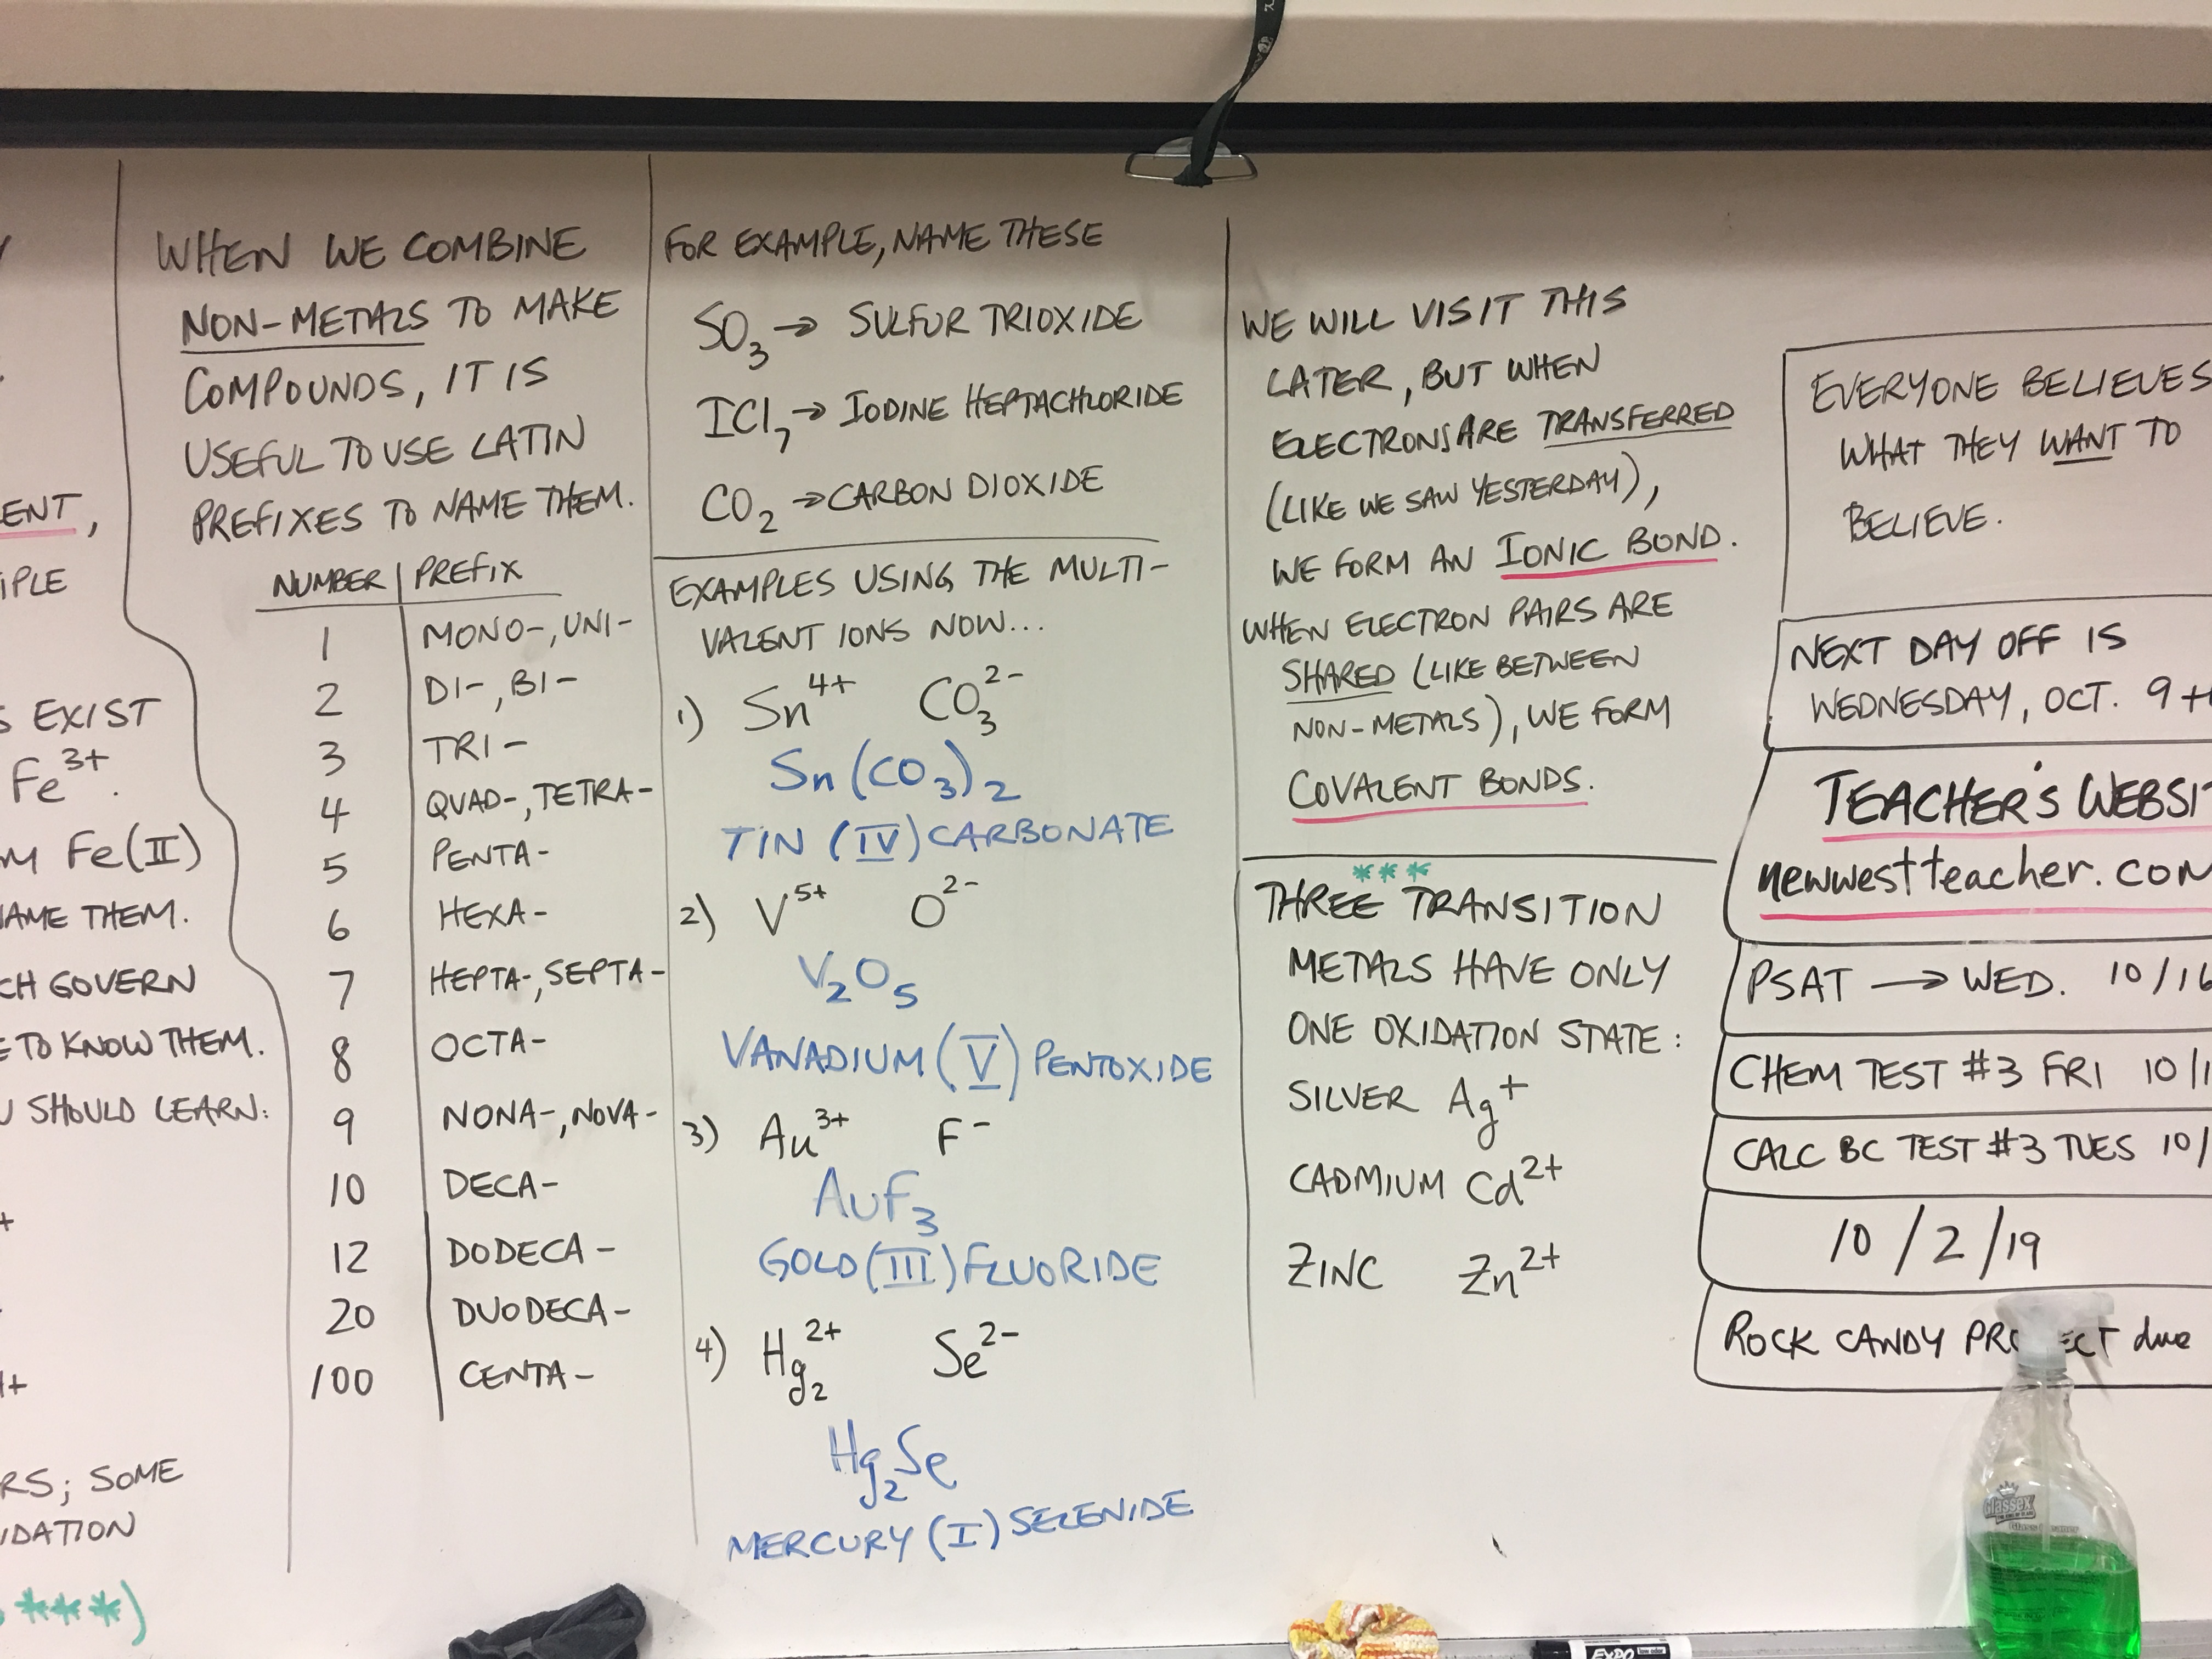 Y
ENT,
IPLE
S EXIST
Fe³⁺.
M Fe(II)
NAME THEM.
CH GOVERN
E TO KNOW THEM.
U SHOULD LEARN:
+
+
RS; SOME
IDATION
***)
WHEN WE COMBINE
NON-METALS TO MAKE
COMPOUNDS, IT IS
USEFUL TO USE LATIN
PREFIXES TO NAME THEM.
NUMBER | PREFIX
1 MONO-, UNI-
2 DI-, BI-
3 TRI-
4 QUAD-, TETRA-
5 PENTA-
6 HEXA-
7 HEPTA-, SEPTA-
8 OCTA-
9 NONA-, NOVA-
10 DECA-
12 DODECA-
20 DUODECA-
100 CENTA-
FOR EXAMPLE, NAME THESE
SO₃ → SULFUR TRIOXIDE
ICl₇ → IODINE HEPTACHLORIDE
CO₂ → CARBON DIOXIDE
EXAMPLES USING THE MULTI-
VALENT IONS NOW...
1) Sn⁴⁺ CO₃²⁻
Sn(CO₃)₂
TIN (IV) CARBONATE
2) V⁵⁺ O²⁻
V₂O₅
VANADIUM (V) PENTOXIDE
3) Au³⁺ F⁻
AuF₃
GOLD (III) FLUORIDE
4) Hg₂²⁺ Se²⁻
Hg₂Se
MERCURY (I) SELENIDE
WE WILL VISIT THIS
LATER, BUT WHEN
ELECTRONS ARE TRANSFERRED
(LIKE WE SAW YESTERDAY),
WE FORM AN IONIC BOND.
WHEN ELECTRON PAIRS ARE
SHARED (LIKE BETWEEN
NON-METALS), WE FORM
COVALENT BONDS.
***
THREE TRANSITION
METALS HAVE ONLY
ONE OXIDATION STATE:
SILVER Ag⁺
CADMIUM Cd²⁺
ZINC Zn²⁺
EVERYONE BELIEVES
WHAT THEY WANT TO
BELIEVE.
NEXT DAY OFF IS
WEDNESDAY, OCT. 9th
TEACHER'S WEBSIT
newwestteacher.com
PSAT → WED. 10/16
CHEM TEST #3 FRI 10/1
CALC BC TEST #3 TUES 10/
10/2/19
ROCK CANDY PROJECT due
Glassex
EXPO